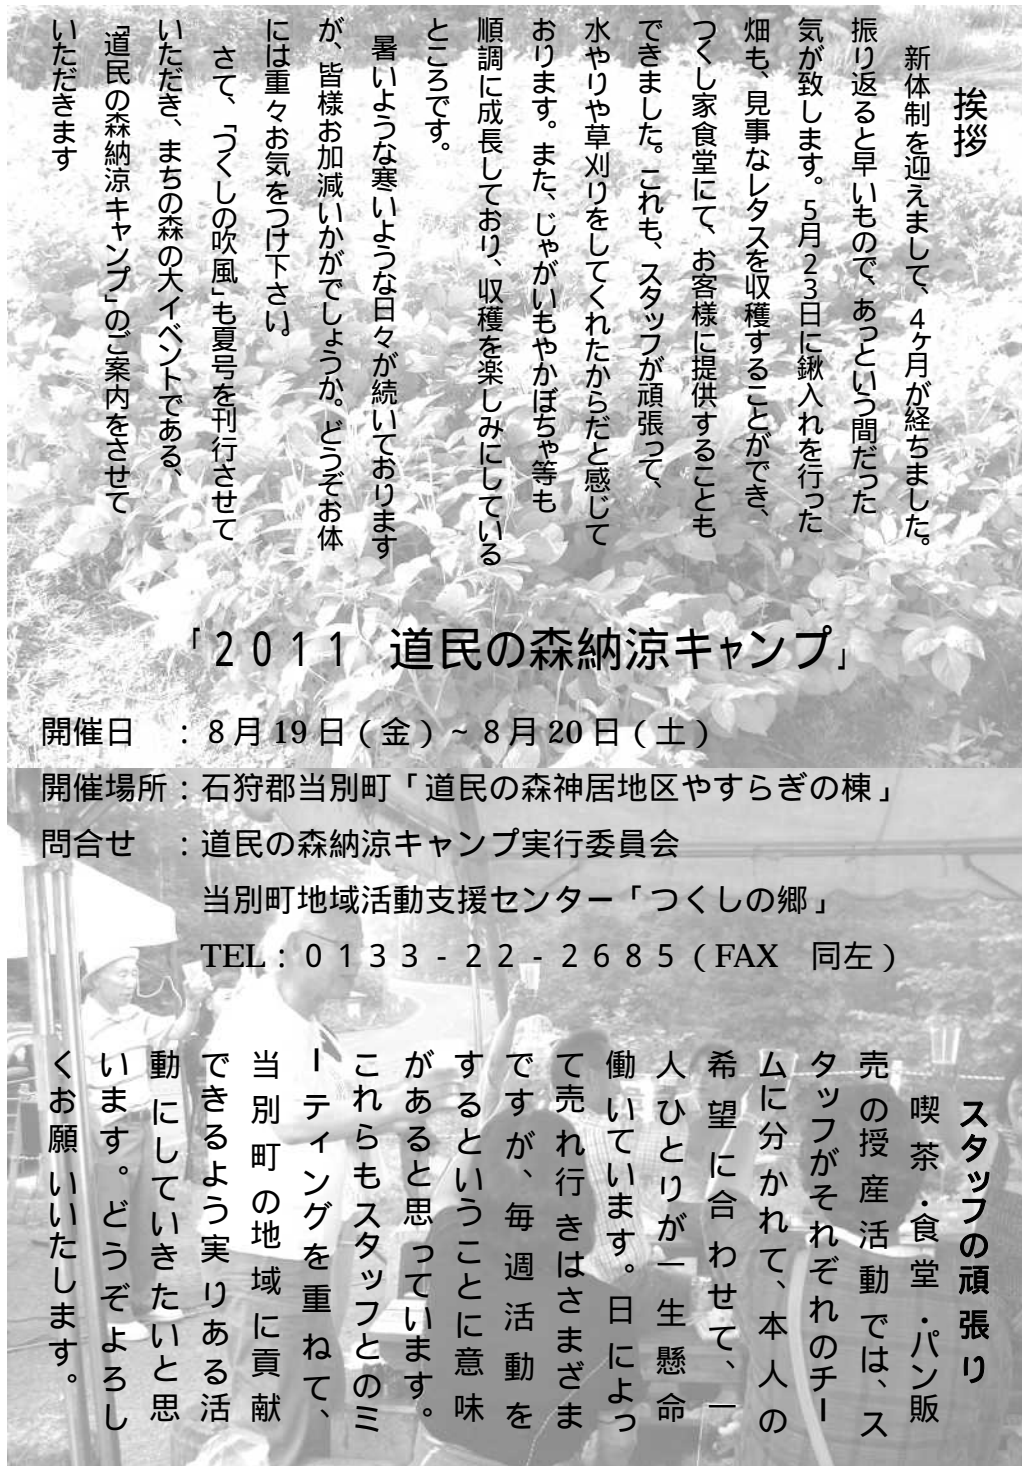 挨拶
新体制を迎えまして、4ヶ月が経ちました。
振り返ると早いもので、あっという間だった
気が致します。5月23日に鍬入れを行った
畑も、見事なレタスを収穫することができ、
つくし家食堂にて、お客様に提供することも
できました。これも、スタッフが頑張って、
水やりや草刈りをしてくれたからだと感じて
おります。また、じゃがいもやかぼちゃ等も
順調に成長しており、収穫を楽しみにしている
ところです。
暑いような寒いような日々が続いております
が、皆様お加減いかがでしょうか。どうぞお体
には重々お気をつけ下さい。
さて、「つくしの吹風」も夏号を刊行させて
いただき、まちの森の大イベントである、
「道民の森納涼キャンプ」のご案内をさせて
いただきます
「2011 道民の森納涼キャンプ」
開催日 :8月19日(金)~8月20日(土)
開催場所:石狩郡当別町「道民の森神居地区やすらぎの棟」
問合せ :道民の森納涼キャンプ実行委員会
当別町地域活動支援センター「つくしの郷」
TEL:0133-22-2685(FAX 同左)
スタッフの頑張り
喫茶・食堂・パン販
売の授産活動では、ス
タッフがそれぞれのチー
ムに分かれて、本人の
希望に合わせて、一
人ひとりが一生懸命
働いています。日によっ
て売れ行きはさまざま
ですが、毎週活動を
するということに意味
があると思っています。
これらもスタッフとのミ
ーティングを重ねて、
当別町の地域に貢献
できるよう実りある活
動にしていきたいと思
います。どうぞよろし
くお願いいたします。